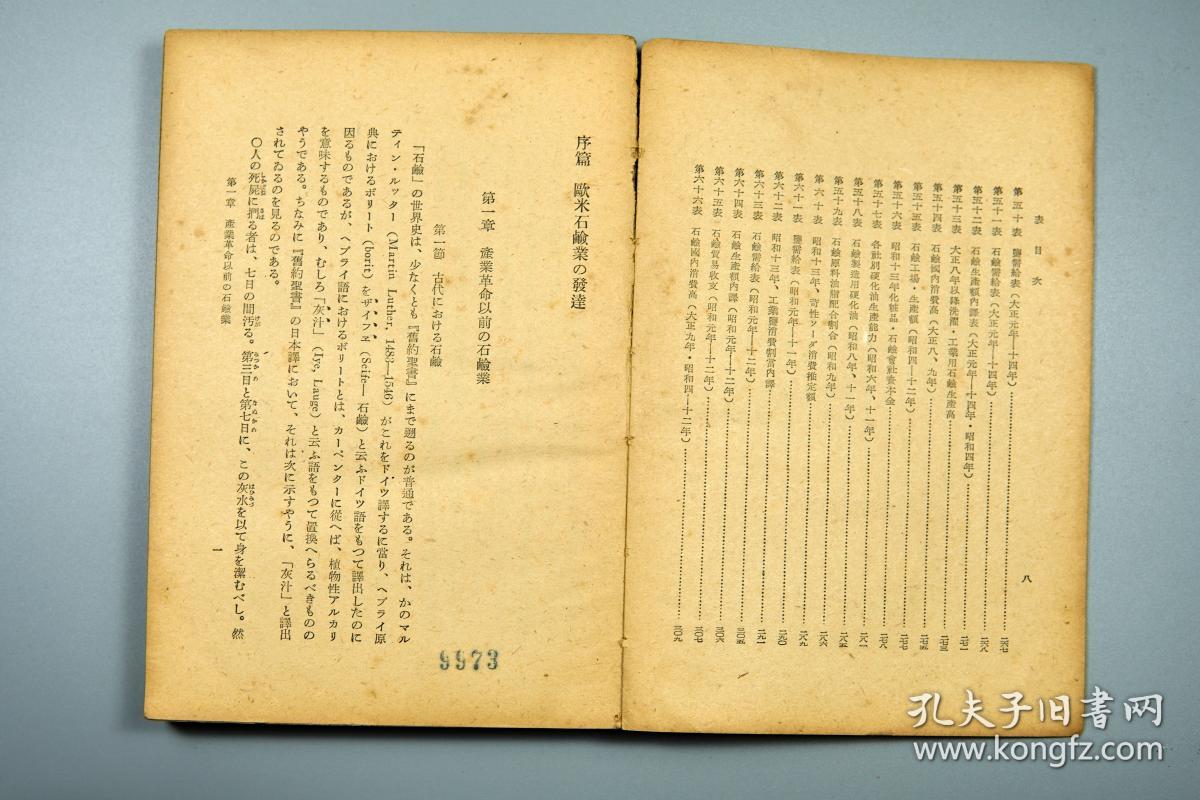 表目次
八
第五十表 鹽需給表(大正元年―十四年)
第五十一表 石鹼需給表(大正元年―十四年)
第五十二表 石鹼生產額內譯表(大正元年―十四年・昭和四年)
第五十三表 大正八年以降洗濯・工業用石鹼生產高
第五十四表 石鹼國內消費高(大正八、九年)
第五十五表 石鹼工場・生產額(昭和四―十二年)
第五十六表 昭和十三年化粧品・石鹼會社資本金
第五十七表 各社別硬化油生產能力(昭和六年、十一年)
第五十八表 石鹼製造用硬化油(昭和八年、十一年)
第五十九表 石鹼原料油脂配合割合(昭和九年)
第六十表 昭和十三年、苛性ソーダ消費推定額
第六十一表 鹽需給表(昭和元年―十一年)
第六十二表 昭和十三年、工業鹽消費割當內譯
第六十三表 石鹼需給表(昭和元年―十二年)
第六十四表 石鹼生產額內譯(昭和元年―十二年)
第六十五表 石鹼貿易收支(昭和元年―十二年)
第六十六表 石鹼國內消費高(大正九年・昭和四―十二年)
序篇 歐米石鹼業の發達
第一章 產業革命以前の石鹼業
第一節 古代における石鹼
「石鹼」の世界史は、少なくとも『舊約聖書』にまで遡るのが普通である。それは、かのマル
ティン・ルッター(Martin Luther, 1483―1546)がこれをドイツ譯するに當り、ヘブライ原
典におけるボリート(borit)をザイフェ(Seife―石鹼)と云ふドイツ語をもつて譯出したのに
因るものであるが、ヘブライ語におけるボリートとは、カーペンターに從へば、植物性アルカリ
を意味するものであり、むしろ「灰汁」(lye, Lauge)と云ふ語をもつて置換へらるべきものの
やうである。ちなみに『舊約聖書』の日本譯において、それは次に示すやうに、「灰汁」と譯出
されてゐるのを見るのである。
〇人の死屍に捫る者は、七日の間汚る。第三日と第七日に、この灰水を以て身を潔むべし。然
第一章 產業革命以前の石鹼業
一
9973
孔夫子旧书网
www.kongfz.com